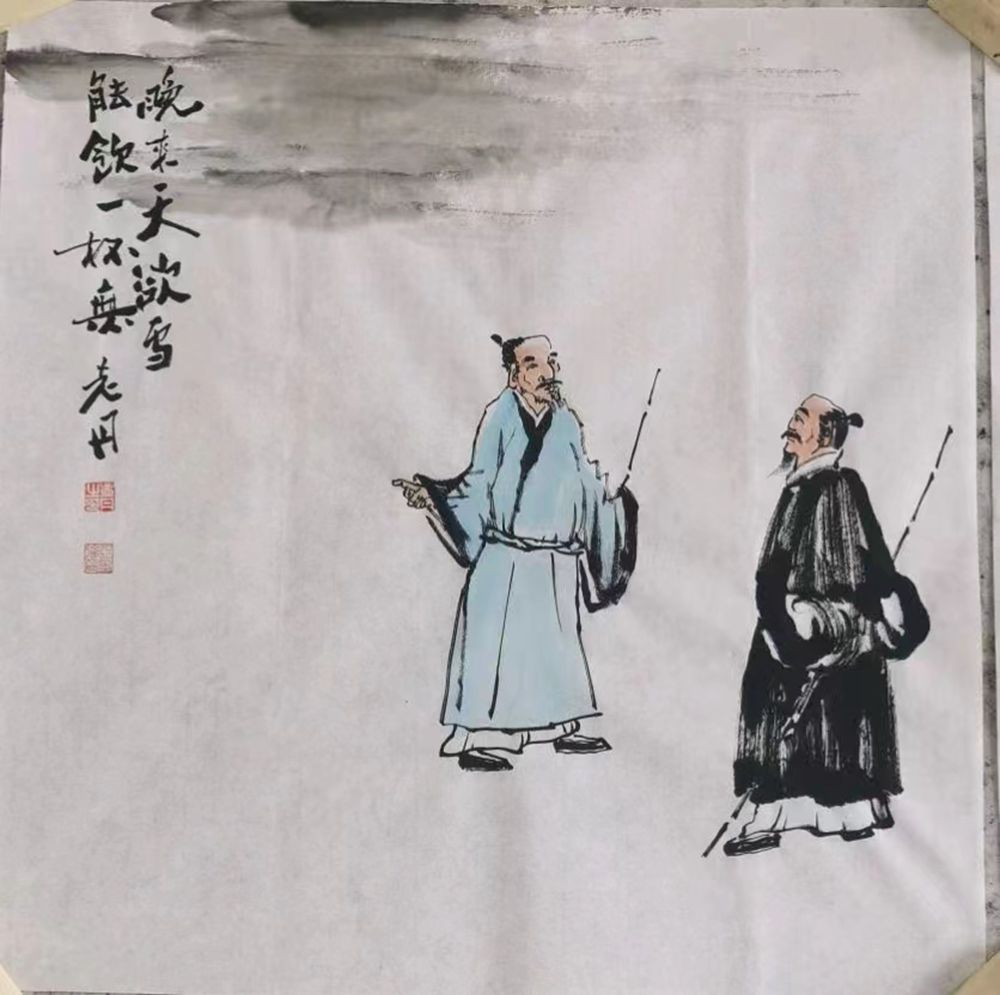 晚来天欲雪
能饮一杯無 老丹